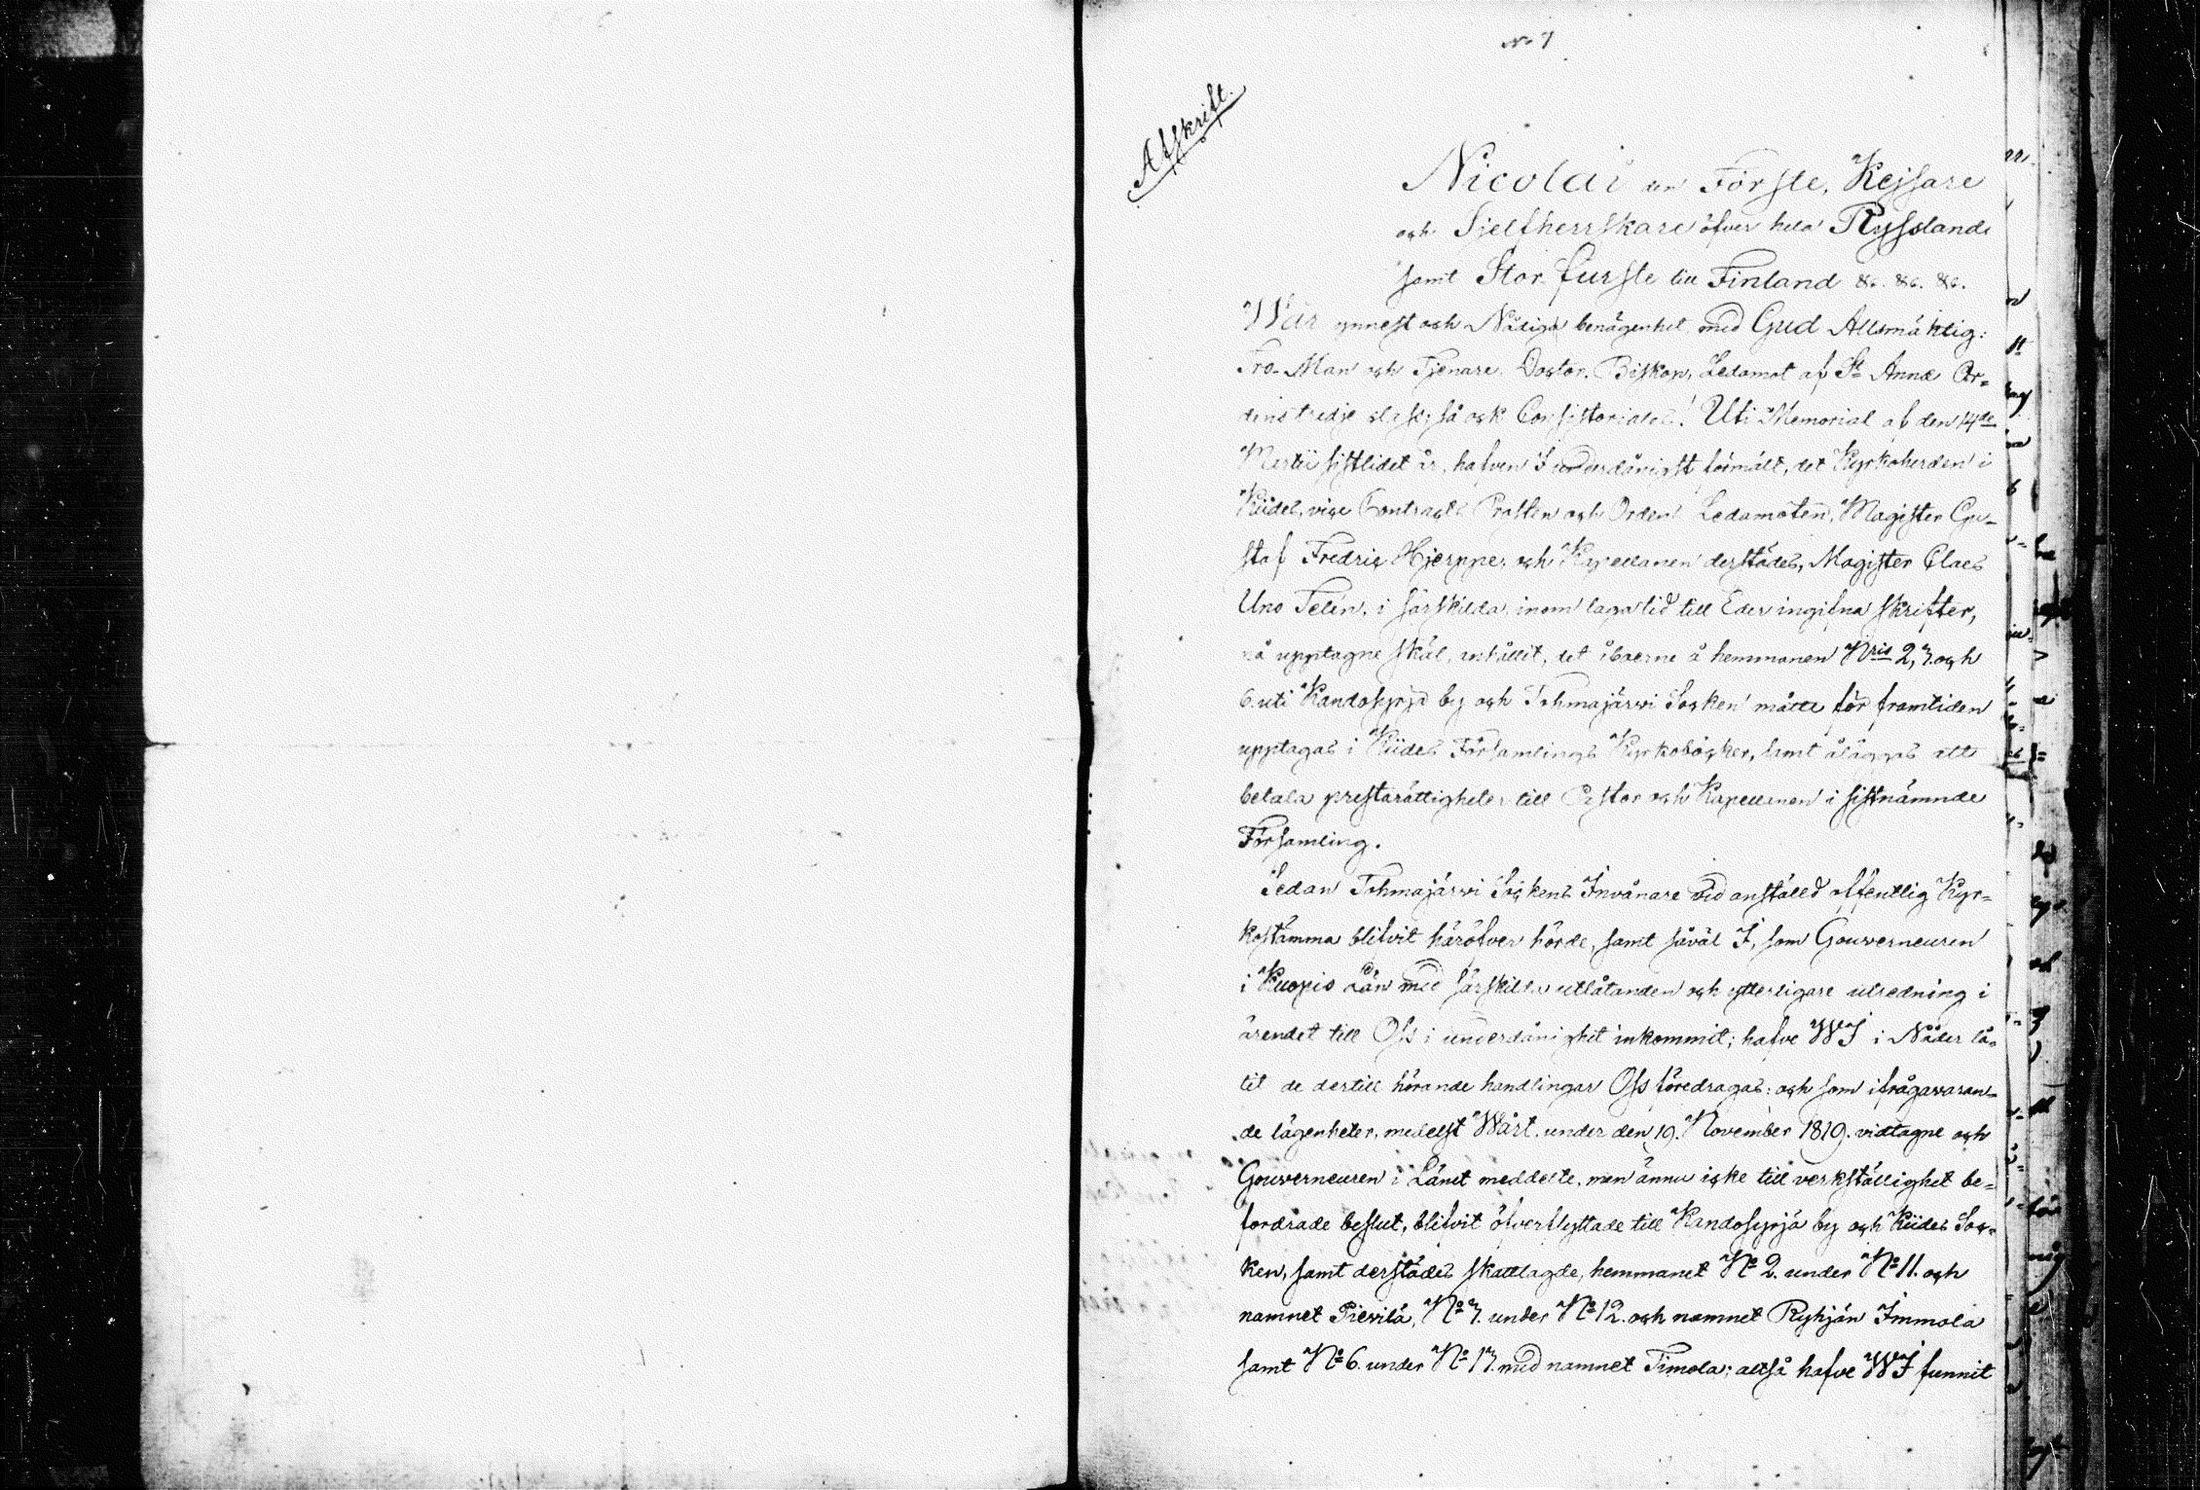 No 7
Afskrift.
Nicolai den Förste, Kejsare
och Sjelfherrskare öfver hela Ryssland
samt Stor-furste till Finland &c. &c. &c.
Wår ynnest och Nådiga benägenhet med Gud Allsmäktig:
Tro-Man och Tjenare. Doctor, Biskop, Ledamot af St Annæ Or-
dens tredje class; så ock Consistoriales! Uti Memorial af den 14de
Martii sistlidet år, hafven I underdånigst förmält, det Kyrkoherden i
Kides, vice Contracts Prosten och Ordens Ledamoten, Magister Gu-
staf Fredric Hjerppe, och Kapellanen derstädes, Magister Claes
Uno Telén, i särskilda, inom laga tid till Eder ingifna skrifter,
på upptagne skäl, anhållit, det åboerne å hemmanen Nris 2, 3. och
6. uti Kandosyrjä by och Tohmajärwi Socken måtte för framtiden
upptagas i Kides Församlings Kyrkoböcker, samt åläggas att
betala prestarättigheter till Pastor och Kapellanen i sistnämnde
Församling.
Sedan Tohmajärwi Sockens Invånare vid anställd offentlig Kyr-
kostämma blifvit häröfver hörde, samt såväl I, som Gouverneuren
i Kuopio Län med särskilda utlåtanden och ytterligare utredning i
ärendet till Oss i underdånighet inkommit; hafve WI i Nåder lå-
tit de dertill hörande handlingar Oss föredragas: och som ifrågavaran-
de lägenheter, medelst Wårt, under den 19. November 1819. vidtagne och
Gouverneuren i Länet meddelte, men ännu icke till verkställighet be-
fordrade beslut, blifvit öfverflyttade till Kandosyrjä by och Kides Soc-
ken, samt derstädes skattlagde, hemmanet No 2. under No 11. och
namnet Pievilä, No 3. under No 12. och namnet Ryhjän Immola
samt No 6. under No 13. med namnet Timola; altså hafve WI funnit